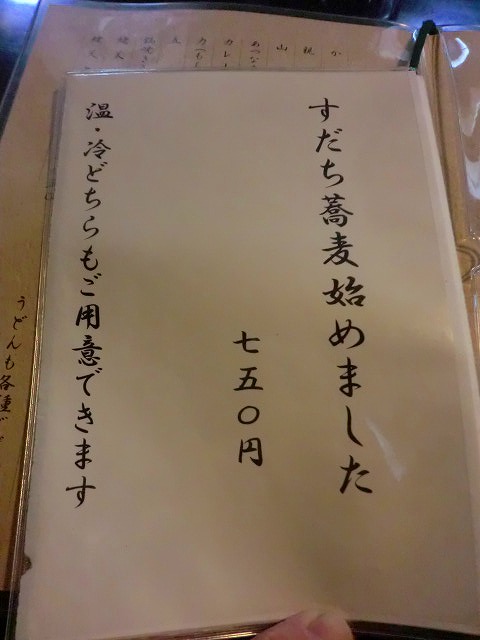 すだち蕎麦始めました
七五〇円
温・冷どちらもご用意できます
うどんも各種